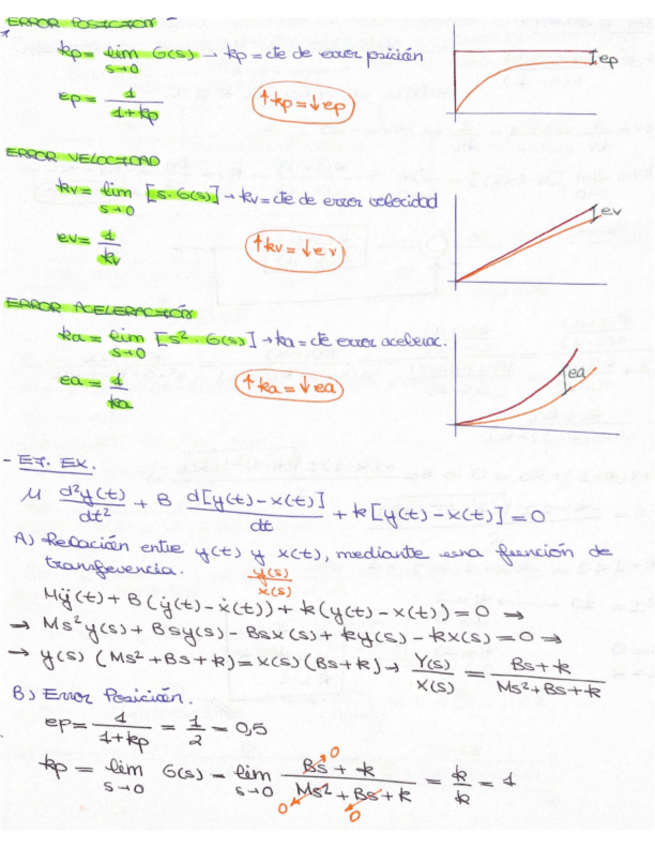 ERROR POSICION -
kp = lim G(s) → kp = cte de error posición
s→0
ep = 1 / 1+kp
↑kp = ↓ep
ep
ERROR VELOCIDAD
kv = lim [s·G(s)] → kv = cte de error velocidad
s→0
ev = 1 / kv
↑kv = ↓ev
ev
ERROR ACELERACIÓN
ka = lim [s²·G(s)] → ka = cte error acelerac.
s→0
ea = 1 / ka
↑ka = ↓ea
ea
- EJ. EX.
M d²y(t)/dt² + B d[y(t)-x(t)]/dt + k[y(t)-x(t)] = 0
A) Relación entre y(t) y x(t), mediante una función de
transferencia. y(s)/x(s)
Mÿ(t) + B(ẏ(t)-ẋ(t)) + k(y(t)-x(t)) = 0 →
→ Ms²y(s) + Bsy(s) - Bsx(s) + ky(s) - kx(s) = 0 →
→ y(s) (Ms²+Bs+k) = x(s)(Bs+k) → Y(s)/X(s) = Bs+k / Ms²+Bs+k
B) Error Posición.
ep = 1 / 1+kp = 1/2 = 0,5
kp = lim G(s) = lim Bs + k / Ms² + Bs + k = k/k = 1
s→0 s→0
0
0 0